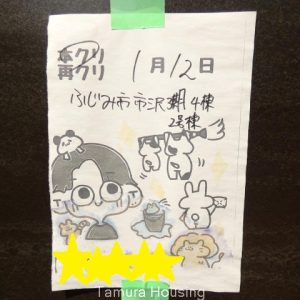 本クリ
再クリ
1月12日
ふじみ市市沢3棟4棟
2号棟
Tamura Housing